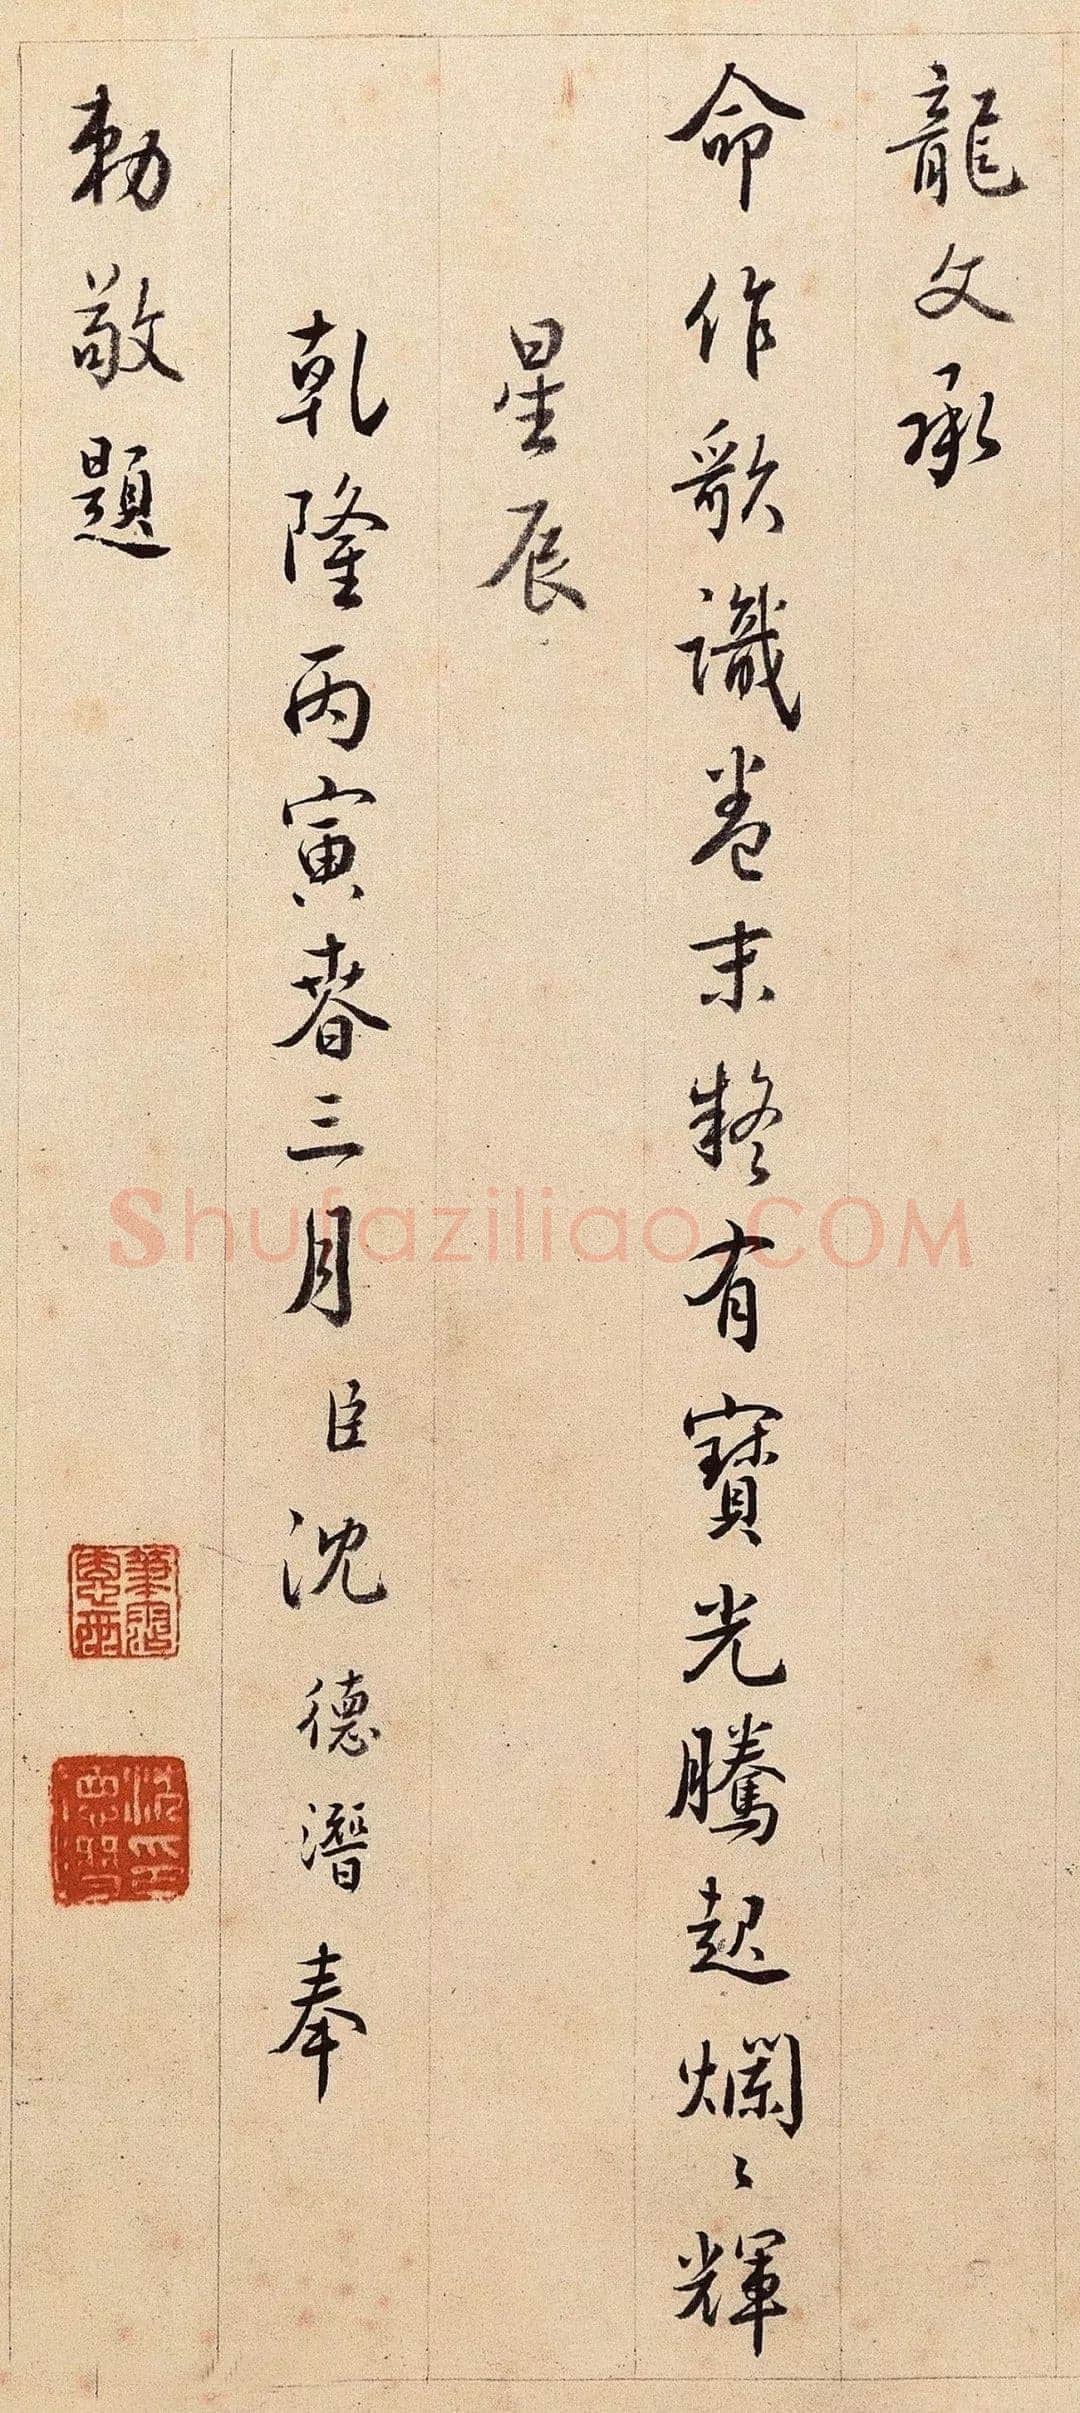 龍文承
命作歌識卷末疑有寶光騰起爛〻輝
星辰
乾隆丙寅春三月臣沈德潛奉
勅敬題
沈德潛印
Shufaziliao.COM